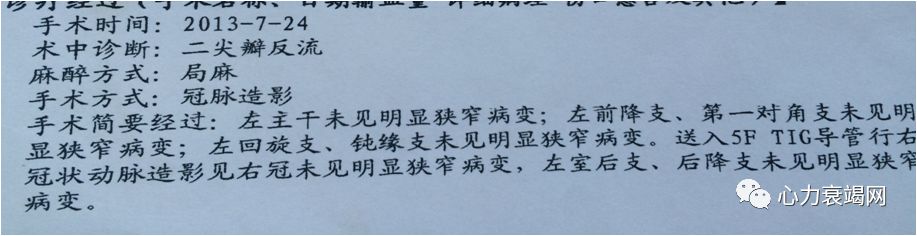 诊疗经过(手术名称、日期输血量 详细病理
手术时间: 2013-7-24
术中诊断: 二尖瓣反流
麻醉方式: 局麻
手术方式: 冠脉造影
手术简要经过: 左主干未见明显狭窄病变; 左前降支、第一对角支未见明
显狭窄病变; 左回旋支、钝缘支未见明显狭窄病变。送入5F TIG导管行右
冠状动脉造影见右冠未见明显狭窄病变, 左室后支、后降支未见明显狭窄
病变。
心力衰竭网